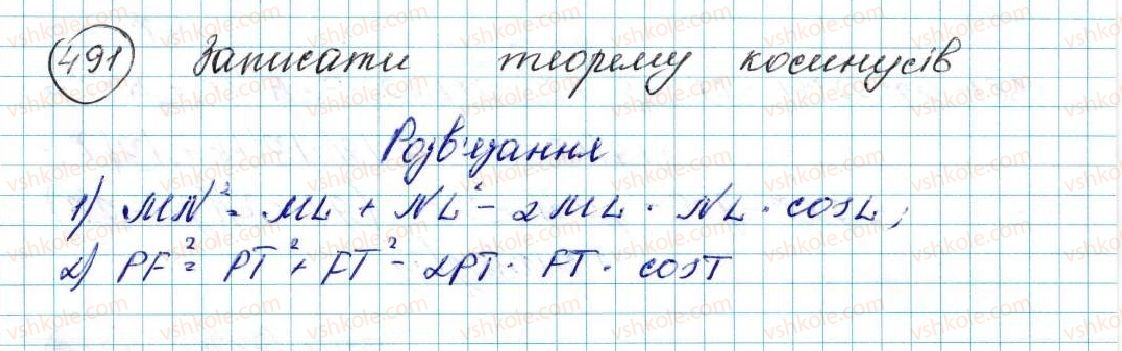 491 Записати теорему косинусів
Розв'язання
1) MN² = ML + NL² - 2ML · NL · cosL;
2) PF² = PT² + FT² - 2PT · FT · cosT